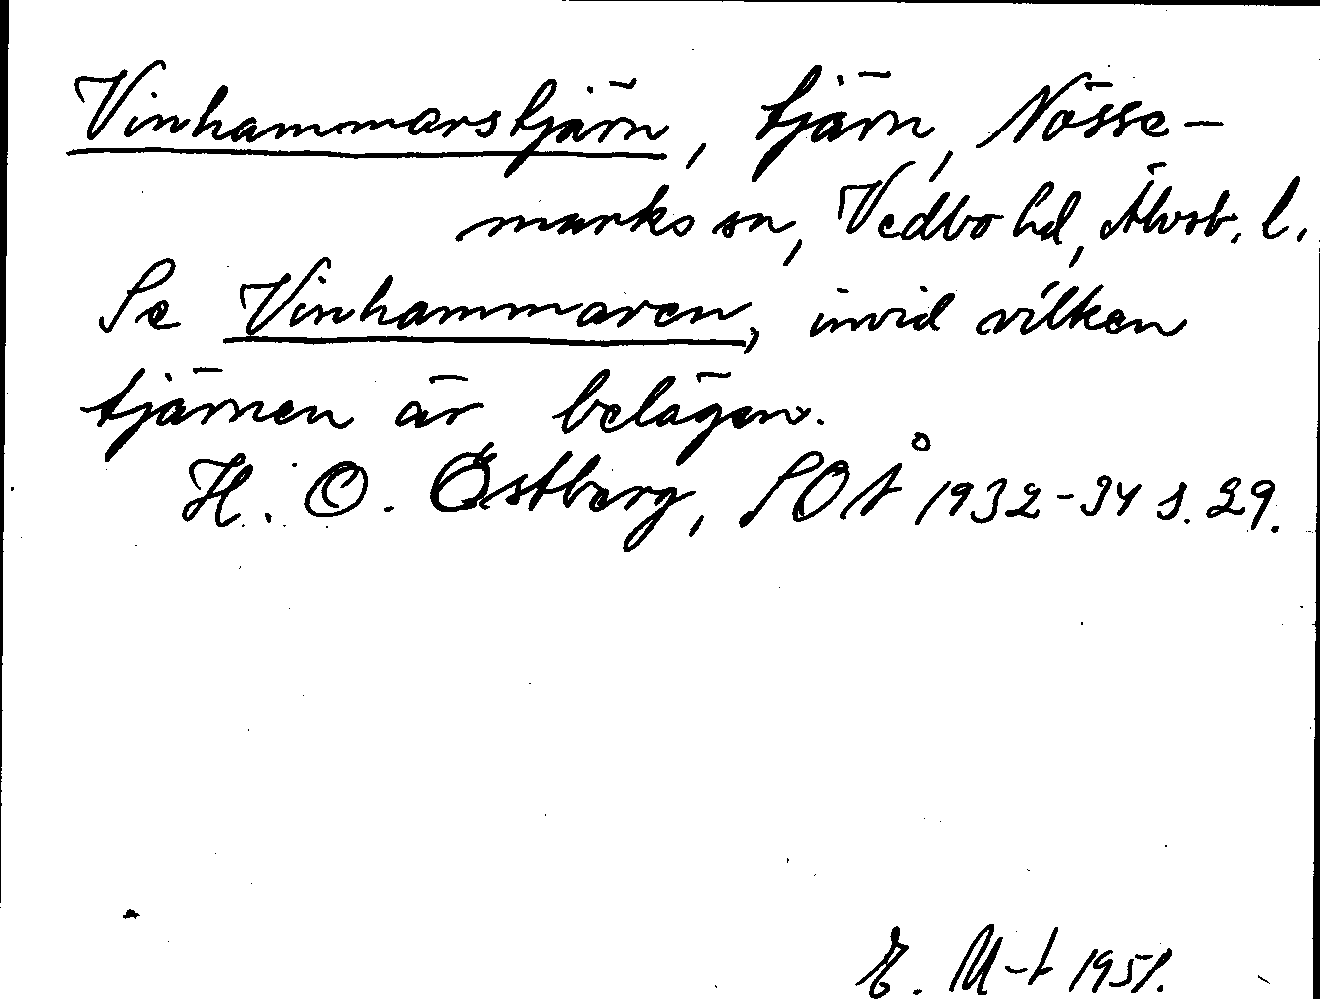 Vinhammarstjärn, tjärn, Nösse-
marks sn, Vedbo hd, Älvsb. l.
Se Vinhammaren, invid vilken
tjärnen är belägen.
H. O. Östberg, SOÅ 1932-34 s. 29.
E. M-t 1951.